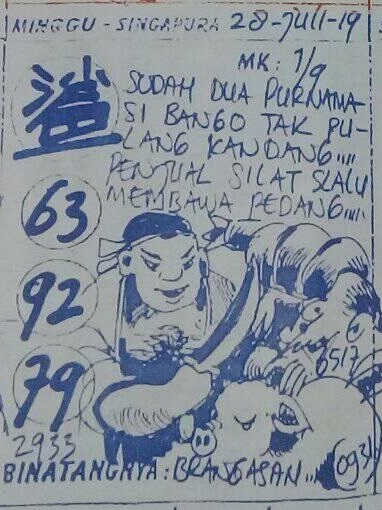 MINGGU - SINGAPURA 28-JULI-19
MK: 7/9
SUDAH DUA PURNAMA
SI BANGO TAK PU-
LANG KANDANG....
PENJUAL SILAT SLALU
MEMBAWA PEDANG....
63
92
79
2933
6517
BINATANGNYA: BRANGASAN...